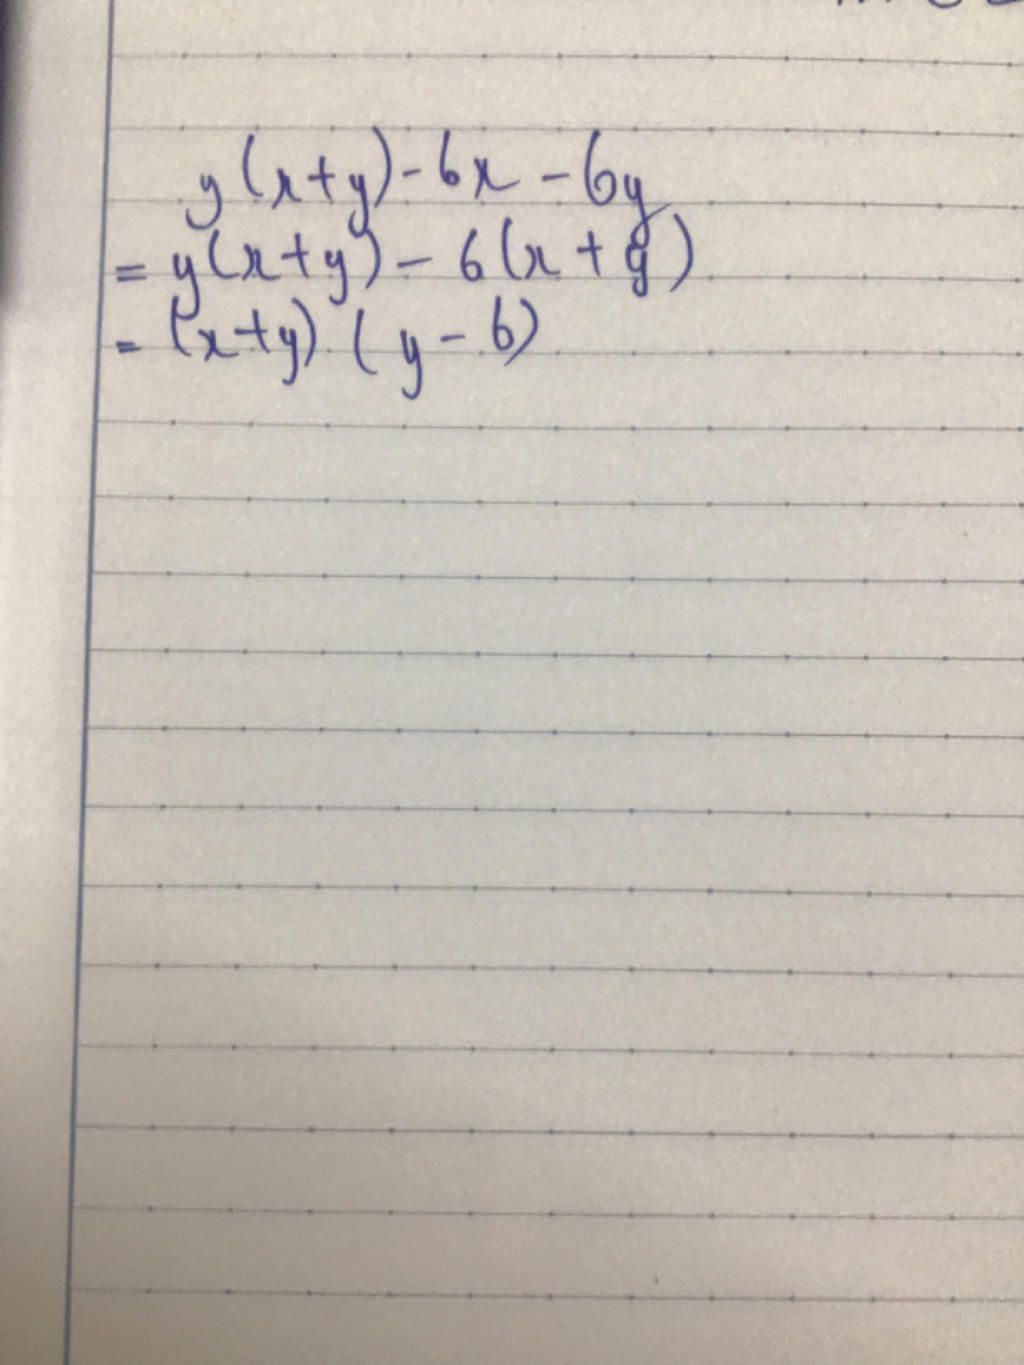 y(x+y)-6x-6y
= y(x+y)-6(x+y)
= (x+y)(y-6)